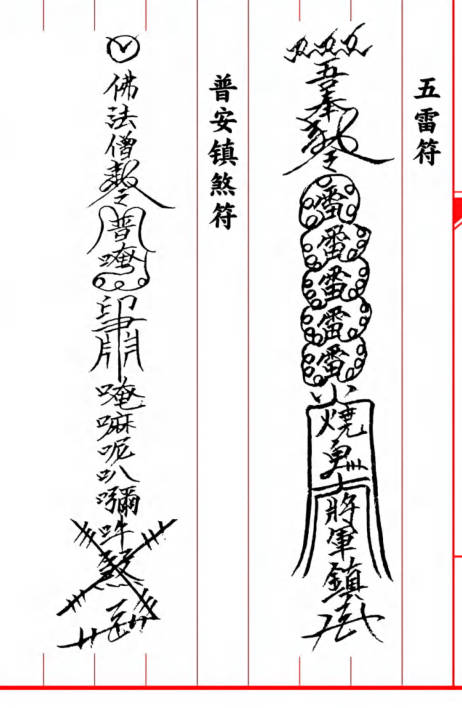 五雷符
吾奉敕令雷雷雷雷雷火燒鬼大將軍鎮
普安镇煞符
佛法僧敕令普唵印唵嘛呢叭嘛吽